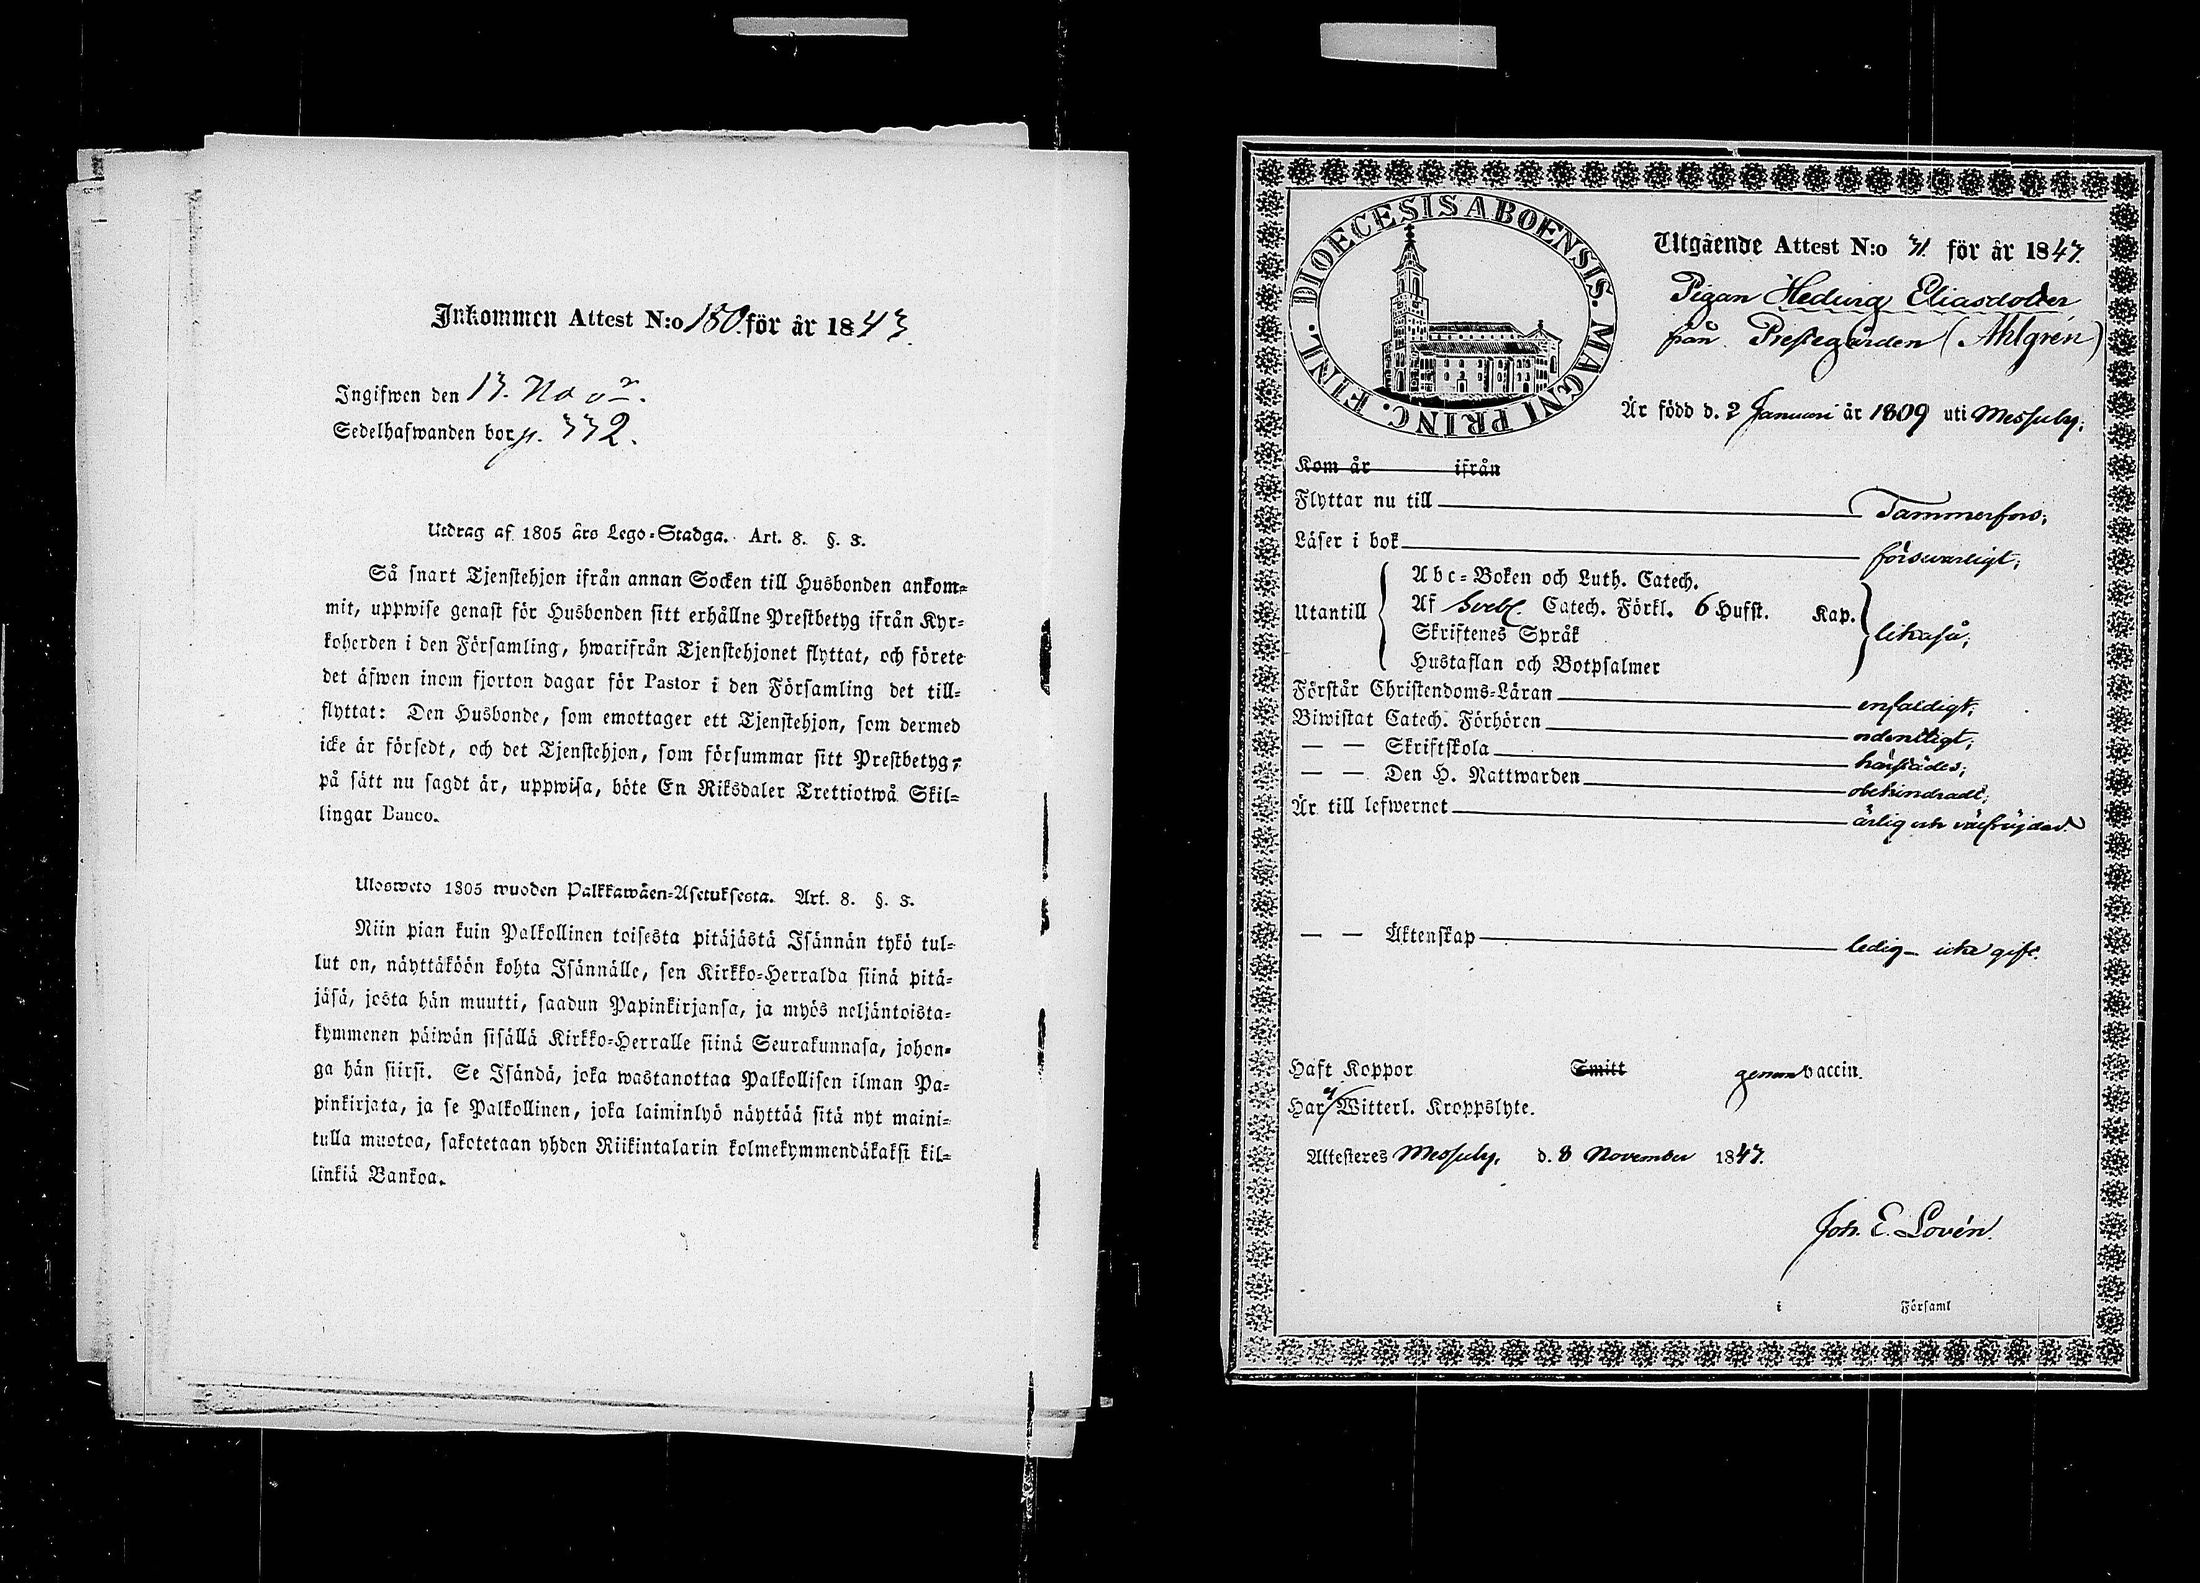 Inkommen Attest N:o 180. för år 1843.
Ingifwen den 13. Novr.
Sedelhafwanden bor p. 332.
Utdrag af 1805 års Lego-Stadga. Art. 8. §. 3.
Så snart Tjenstehjon ifrån annan Socken till Husbonden ankom-
mit, uppwise genast för Husbonden sitt erhållne Prestbetyg ifrån Kyr-
koherden i den Församling, hwarifrån Tjenstehjonet flyttat, och förete
det äfwen inom fjorton dagar för Pastor i den Församling det till-
flyttat: Den Husbonde, som emottager ett Tjenstehjon, som dermed
icke är försedt, och det Tjenstehjon, som försummar sitt Prestbetyg,
på sätt nu sagdt är, uppwisa, böte En Riksdaler Trettiotwå Skil-
lingar Banco.
Ulosweto 1805 wuoden Palkkawäen-Asetuksesta. Art. 8. §. 3.
Niin pian kuin Palkollinen toisesta pitäjästä Isännän tykö tul-
lut on, näyttäköön kohta Isännälle, sen Kirkko-Herralda siinä pitä-
jäsä, josta hän muutti, saadun Papinkirjansa, ja myös neljäntoista-
kymmenen päiwän sisällä Kirkko-Herralle siinä Seurakunnasa, johon-
ga hän siirsi. Se Isändä, joka wastanottaa Palkollisen ilman Pa-
pinkirjata, ja se Palkollinen, joka laiminlyö näyttää sitä nyt maini-
tulla muotoa, sakotetaan yhden Riikintalarin kolmekymmendäkaksi kil-
linkiä Bankoa.
DIOECESIS ABOENSIS. MAGNI PRINC. FINL.
Utgående Attest N:o 31. för år 1843.
Pigan Hedvig Eliasdotter
från Prestegården (Ahlgrén)
Är född d. 2 Januari år 1809 uti Messuby;
Kom år ifrån
Flyttar nu till Tammerfors;
Läser i bok försvarligt;
Utantill
Abc-Boken och Luth. Catech.
Af Svebel. Catech. Förkl. 6 Hufst. Kap.
Skriftenes Språk
Hustaflan och Botpsalmer
likaså;
Förstår Christendoms-Läran enfaldigt;
Biwistat Catech. Förhören ordentligt;
— — Skriftskola härstädes;
— — Den H. Nattwarden obehindradt;
Är till lefwernet ärlig och välfrägdad.
— — Äktenskap ledig – icke gift.
Haft Koppor Smitt genom vaccin.
Har ej Witterl. Kroppslyte.
Attesteres Messuby, d. 8 November 1843.
Joh. E. Lovén.
i Församl